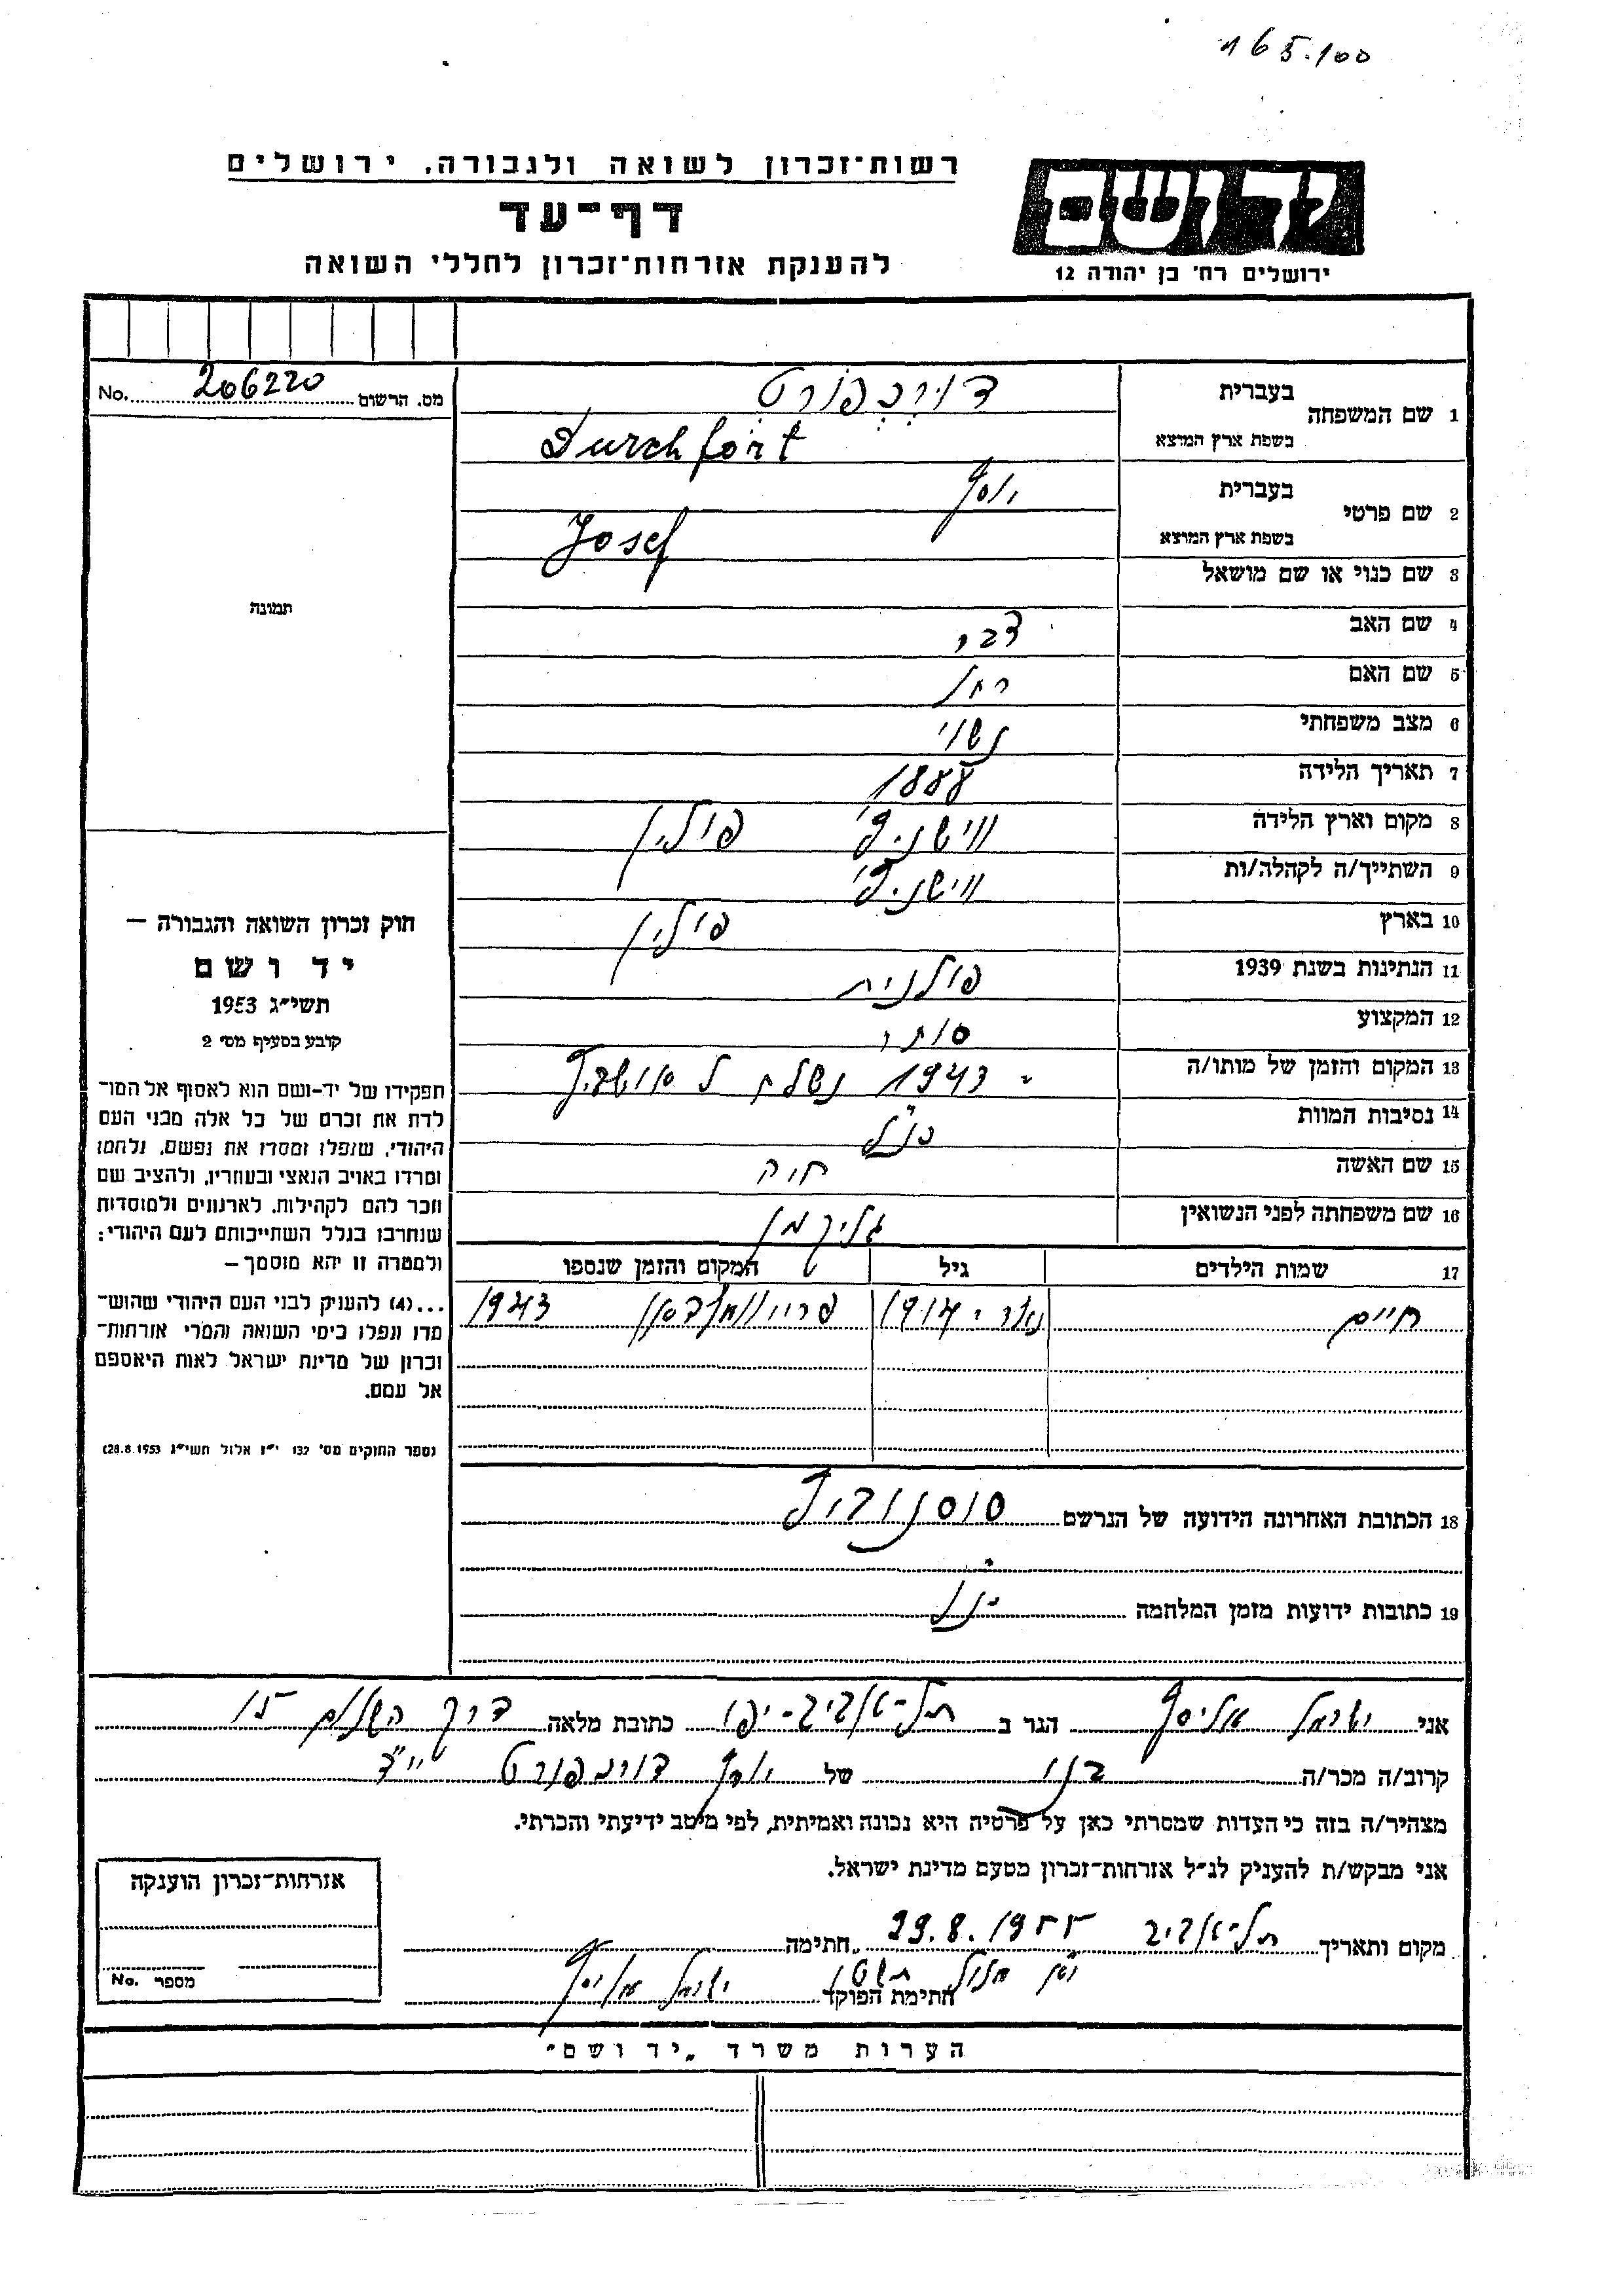 165.100
רשות־זכרון לשואה ולגבורה, ירושלים
יד ושם
דף־עד
להענקת אזרחות־זכרון לחללי השואה
ירושלים רח' בן יהודה 12
מס. הרשום 206220 No.
1 שם המשפחה בעברית דורכפורט
בשפת ארץ המוצא Durchfort
2 שם פרטי בעברית יוסף
בשפת ארץ המוצא Josef
3 שם כנוי או שם מושאל
תמונה
4 שם האב צבי
5 שם האם רחל
6 מצב משפחתי נשוי
7 תאריך הלידה 1888
8 מקום וארץ הלידה פולין
9 השתייך/ה לקהלה/ות
10 בארץ פולין
11 הנתינות בשנת 1939 פולנית
12 המקצוע סוחר
13 המקום והזמן של מותו/ה ב 1943 נשלח ל
14 נסיבות המוות כנ"ל
15 שם האשה חוה
16 שם משפחתה לפני הנשואין גליקמן
17 שמות הילדים גיל המקום והזמן שנספו
חיים נולד ב 1917 1943
18 הכתובת האחרונה הידועה של הנרשם סוסנוביץ
19 כתובות ידועות מזמן המלחמה כנ"ל
חוק זכרון השואה והגבורה —
יד ושם
תשי״ג 1953
קובע בסעיף מס׳ 2
תפקידו של יד־ושם הוא לאסוף אל המו־
לדת את זכרם של כל אלה מבני העם
היהודי, שנפלו ומסרו את נפשם, נלחמו
ומרדו באויב הנאצי ובעוזריו, ולהציב שם
וזכר להם לקהילות, לארגונים ולמוסדות
שנחרבו בגלל השתייכותם לעם היהודי;
ולמטרה זו יהא מוסמך —
...(4) להעניק לבני העם היהודי שהוש־
מדו ונפלו בימי השואה והמרי אזרחות־
זכרון של מדינת ישראל לאות היאספם
אל עמם.
(ספר החוקים מס׳ 132 י״ז אלול תשי״ג 28.8.1953)
אני ישראל אליסף הגר ב תל-אביב-יפו כתובת מלאה דרך השלום 15
קרוב/ה מכר/ה בנו של יוסף דורכפורט הי"ד
מצהיר/ה בזה כי העדות שמסרתי כאן על פרטיה היא נכונה ואמיתית, לפי מיטב ידיעתי והכרתי.
אני מבקש/ת להעניק לנ״ל אזרחות־זכרון מטעם מדינת ישראל.
מקום ותאריך תל-אביב 29.8.1955 חתימה
חתימת הפוקד ישראל אליסף
אזרחות־זכרון הוענקה
מספר No.
הערות משרד „יד ושם״